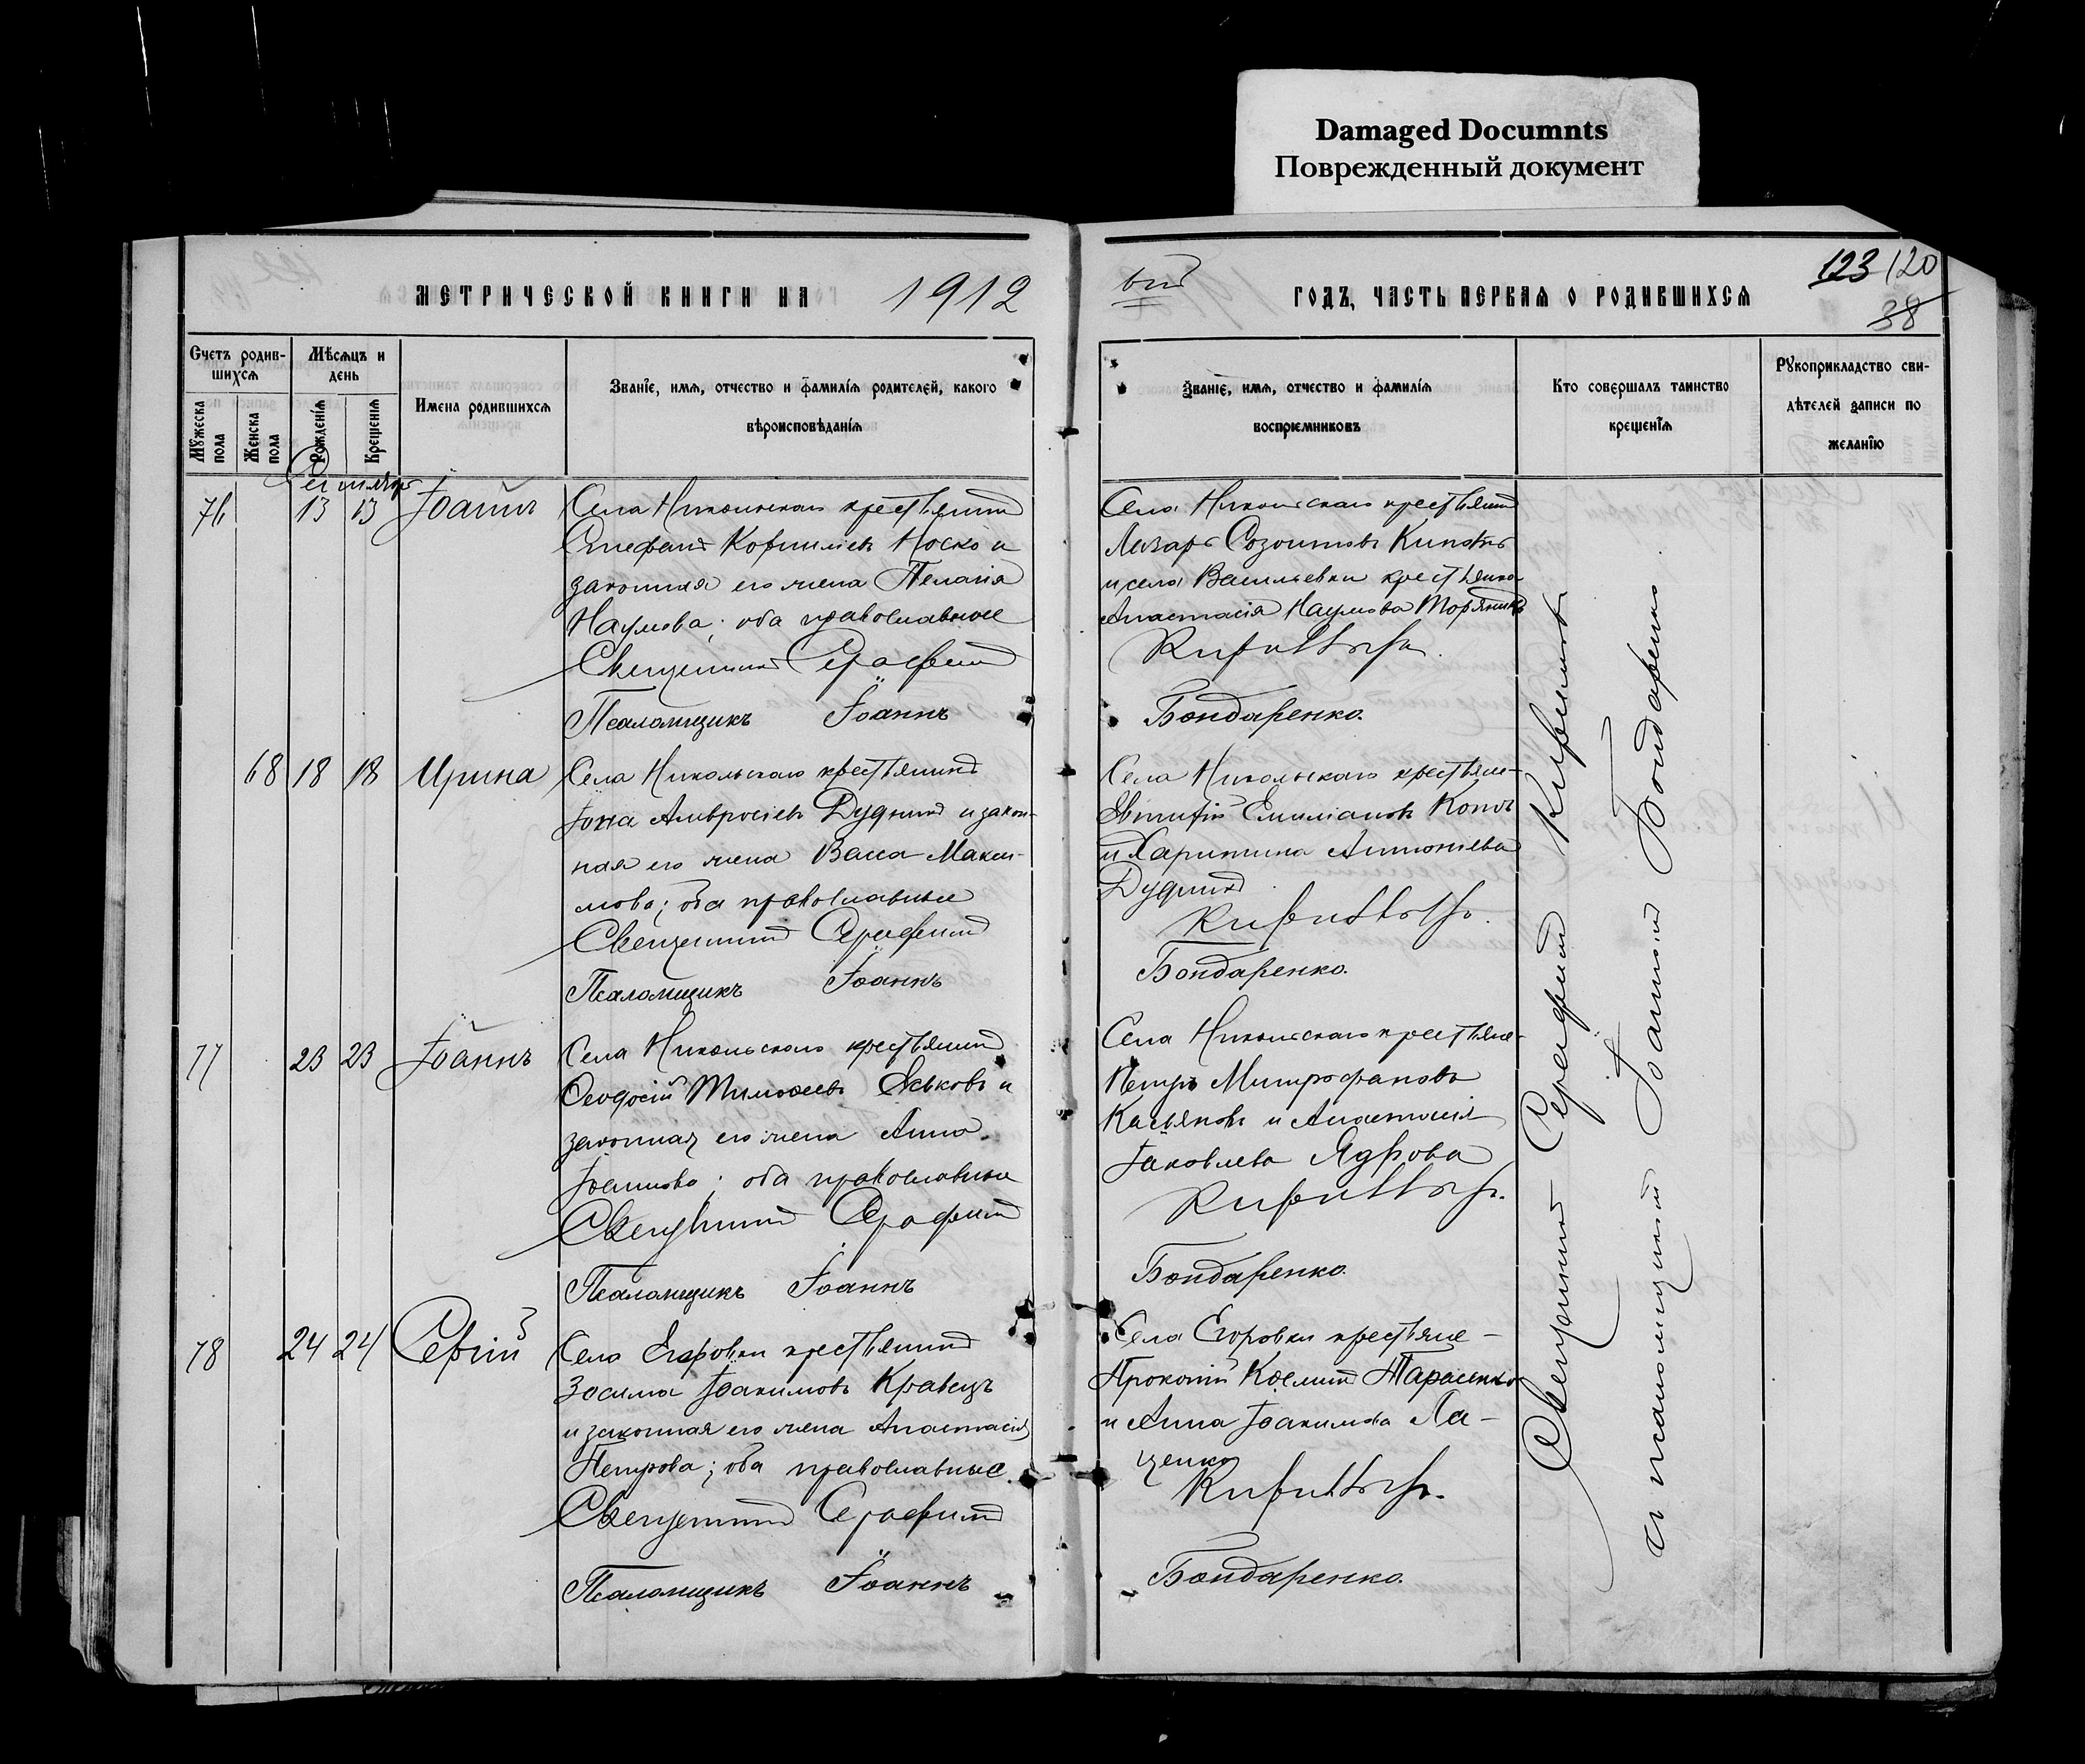 Damaged Documnts
Поврежденный документ
МЕТРИЧЕСКОЙ КНИГИ НА 1912
ый ГОДЪ, ЧАСТЬ ПЕРВАЯ О РОДИВШИХСЯ
123 120
38
Счетъ родив-
шихся
Мужеска пола
Женска пола
Мѣсяцъ и
день
Рожденія
Крещенія
Имена родившихся
Званіе, имя, отчество и фамилія родителей, какого
вѣроисповѣданія
Званіе, имя, отчество и фамилія
воспріемниковъ
Кто совершалъ таинство
крещенія
Рукоприкладство сви-
дѣтелей записи по
желанію
Сентябрь
76 13 13 Іоаннъ
Села Никольскаго крестьянинъ
Стефанъ Корниліевъ Носко и
законная его жена Пелагія
Наумова; оба православные
Священникъ Серафимъ
Псаломщикъ Іоаннъ
Села Никольскаго крестьянинъ
Лазарь Созонтовъ
и села Васильевки крестьянка
Анастасія Наумова
Бондаренко.
68 18 18 Ирина
Села Никольскаго крестьянинъ
Іона Амвросіевъ Дудникъ и закон-
ная его жена Васса Макси-
мова; оба православные
Священникъ Серафимъ
Псаломщикъ Іоаннъ
Села Никольскаго крестьяне-
Емиліановъ
и Харитина Антоніева
Дудникъ
Бондаренко.
77 23 23 Іоаннъ
Села Никольскаго крестьянинъ
Ѳеодосій Тимоѳеевъ и
законная его жена Анна
Іоаннова; оба православные
Священникъ Серафимъ
Псаломщикъ Іоаннъ
Села Никольскаго крестьяне-
Петръ Митрофановъ
Касьяновъ и Анастасія
Іаковлева Ядрова
Бондаренко.
78 24 24 Сергій
Села Егоровки крестьянинъ
Зосима Іоакимовъ Кравецъ
и законная его жена Анастасія
Петрова; оба православные.
Священникъ Серафимъ
Псаломщикъ Іоаннъ
Села Егоровки крестьяне-
Прокопій Тарасенко
и Анна Іоакимова Ла-
ценко
Бондаренко.
Священникъ Серафимъ
съ псаломщикомъ Іоанномъ Бондаренко